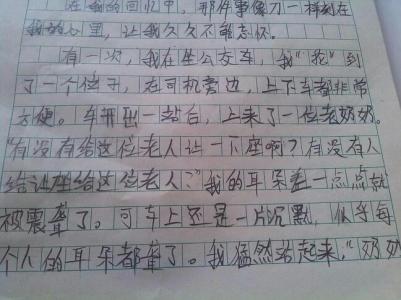 在我的回忆中，那件事像刀一样刻在
我的心里，让我久久不能忘怀。
有一次，我在坐公交车，我“抢”到
了一个位子，在司机旁边，上下车都非常
方便。车开出一站台，上来了一位老奶奶。
“有没有给这位老人让一下座啊？有没有人
给让座给这位老人？”我的耳朵差一点点就
被震聋了。可车上还是一片沉默，似乎每
个人的耳朵都聋了。我猛然站起来，“奶奶